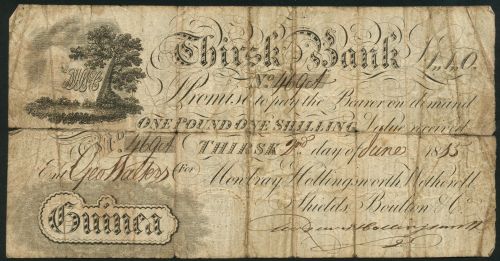 Thirsk Bank £1,1,0
No. 4694
Promise to pay the Bearer on demand
ONE POUND ONE SHILLING Value received
No. 4694 THIRSK 2nd day of June 18
Entd Geo Walters For Monkray Hollingsworth Wetherell
Shields Boulton & Co
Guinea